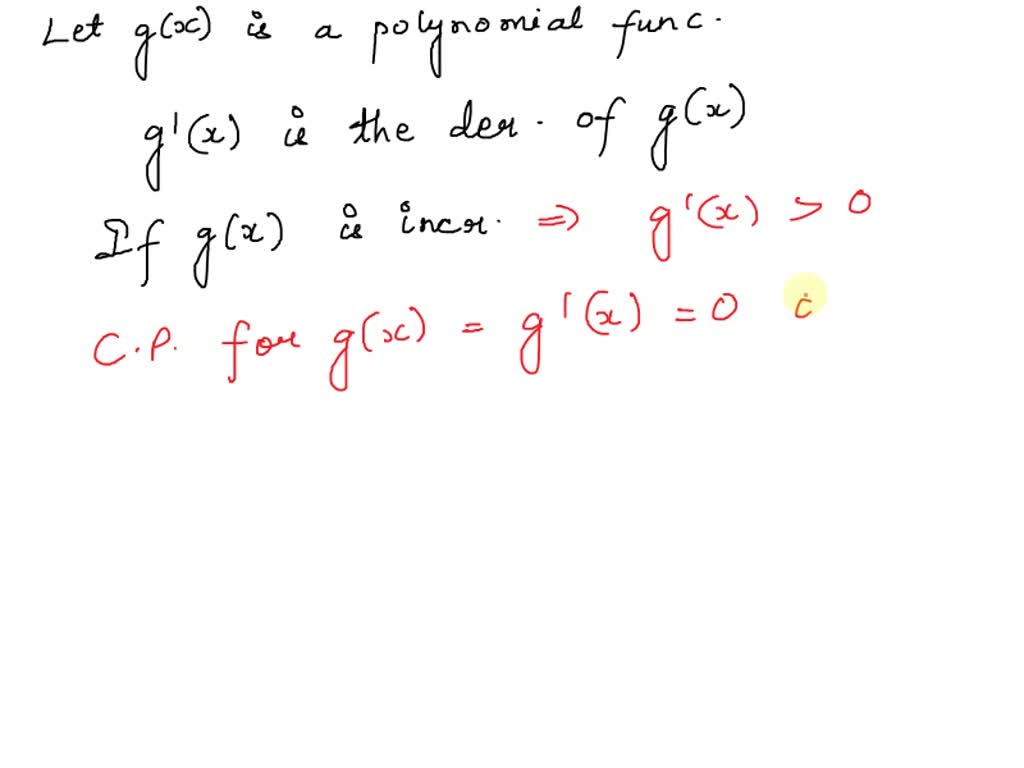 Let g(x) is a polynomial func.
g'(x) is the der. of g(x)
If g(x) is incr. ⇒ g'(x) > 0
C.P. for g(x) = g'(x) = 0 i